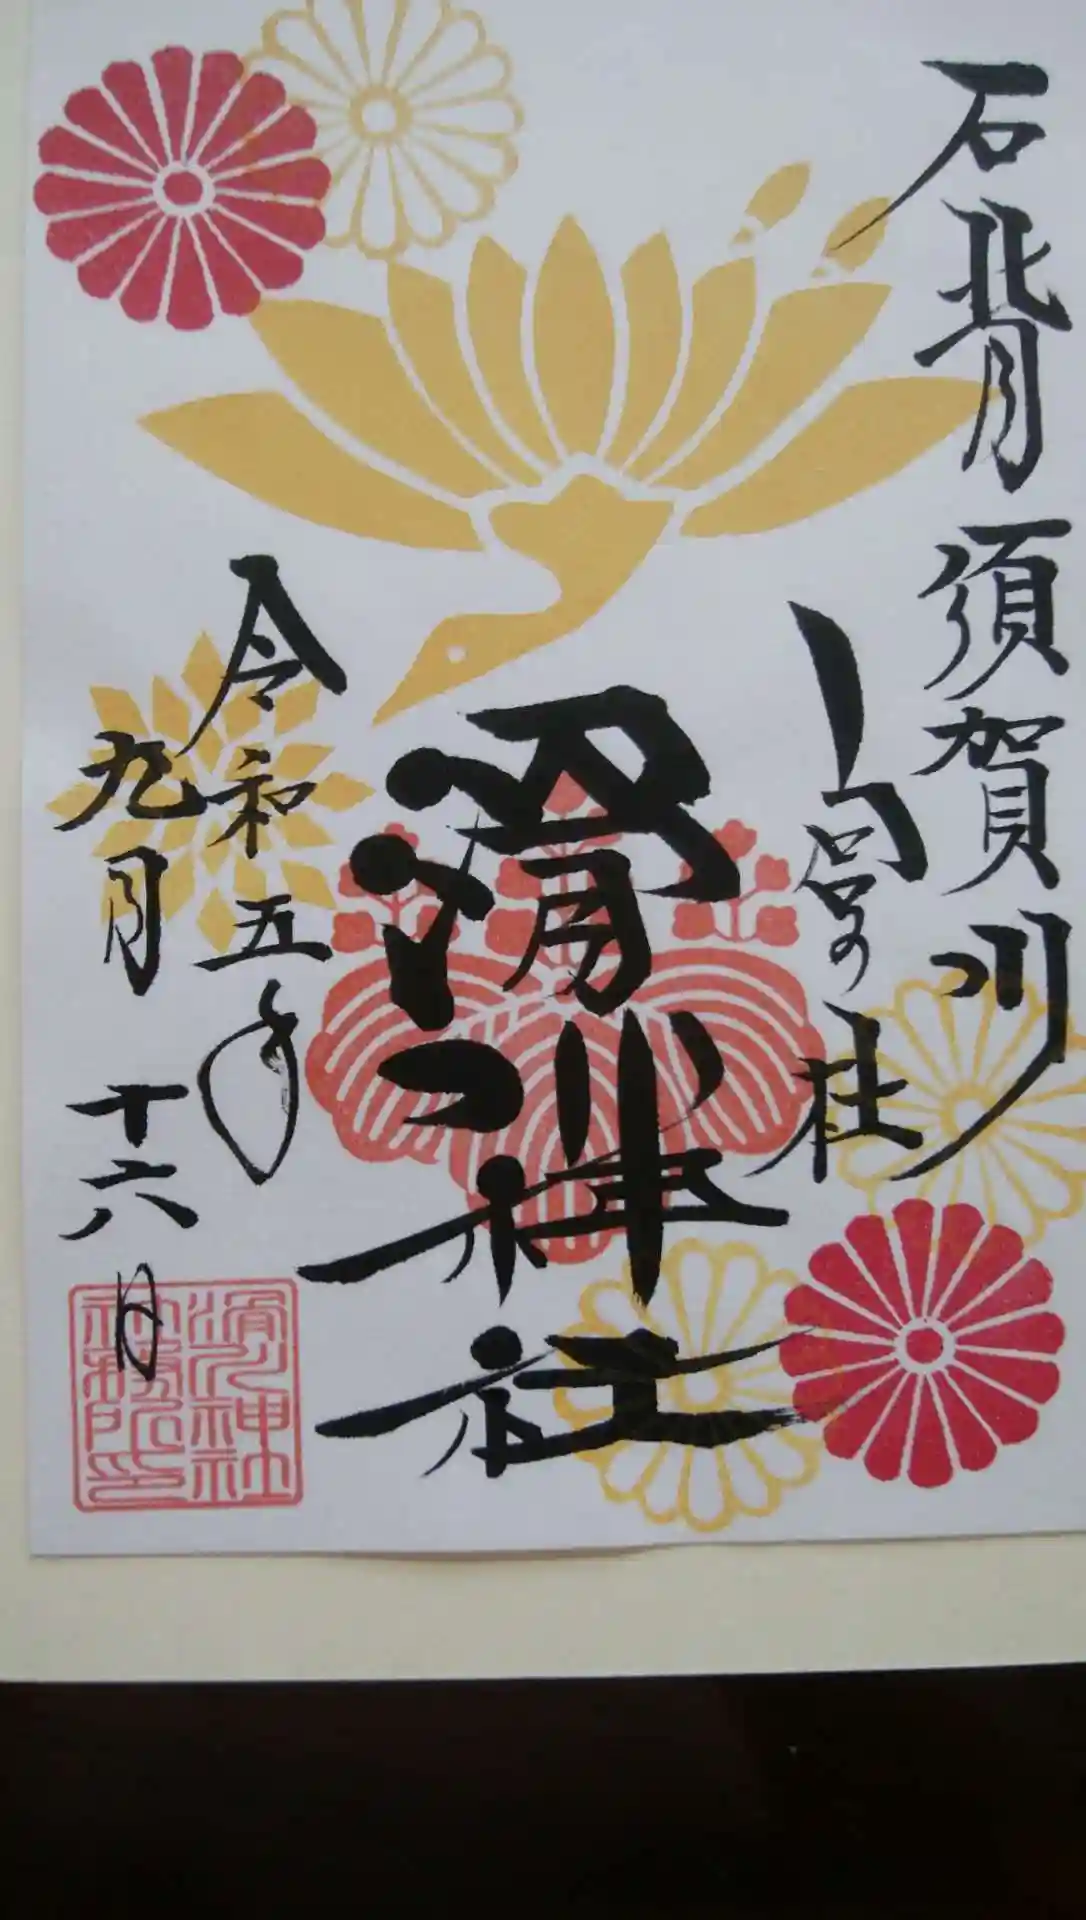 石背 須賀川
宮の社
滑川神社
令和五年
九月十六日
滑川神社
社務所印